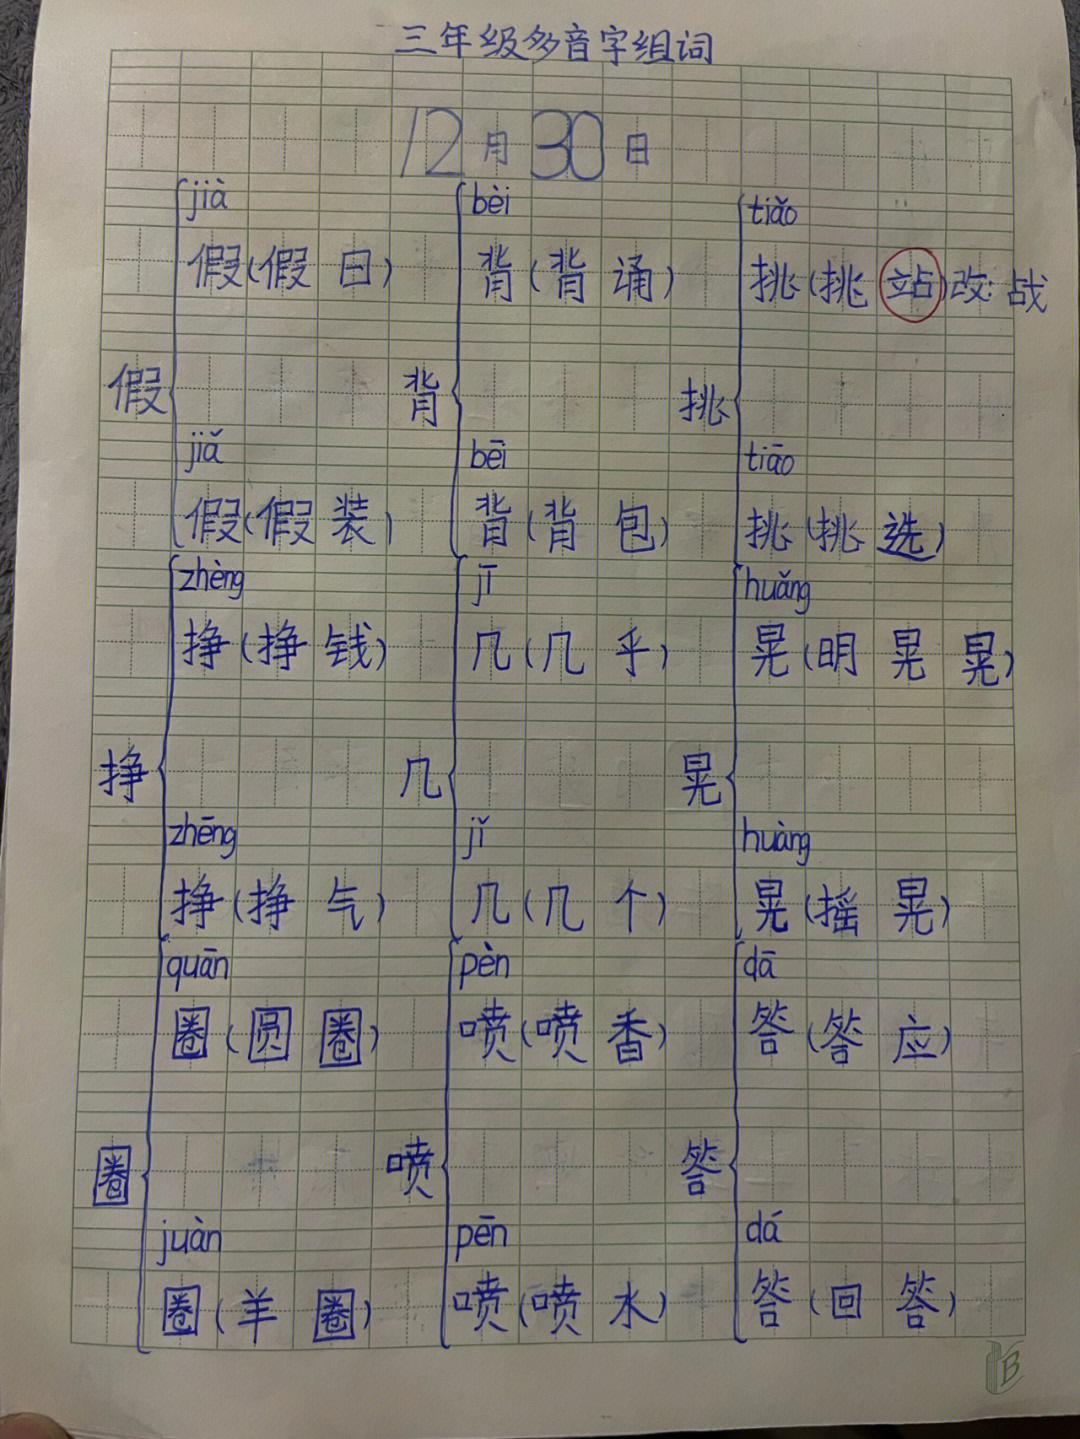 三年级多音字组词
12月30日
jià bèi tiǎo
假(假日) 背(背诵) 挑(挑站)改:战
假 背 挑
jiǎ bēi tiāo
假(假装) 背(背包) 挑(挑选)
zhèng jī huǎng
挣(挣钱) 几(几乎) 晃(明晃晃)
挣 几 晃
zhēng jǐ huàng
挣(挣气) 几(几个) 晃(摇晃)
quān pèn dā
圈(圆圈) 喷(喷香) 答(答应)
圈 喷 答
juàn pēn dá
圈(羊圈) 喷(喷水) 答(回答)
B